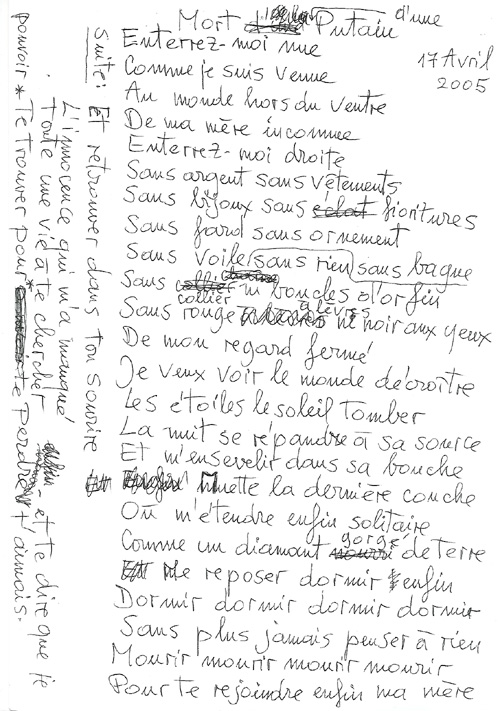 Mort d'une Putain
17 Avril
2005
Enterrez-moi nue
Comme je suis venue
Au monde hors du ventre
De ma mère inconnue
Enterrez-moi droite
Sans argent sans vêtements
Sans bijoux sans fioritures
Sans fard sans ornement
Sans voile sans rien sans bague
Sans collier ni boucles d'or fin
Sans rouge à lèvres ni noir aux yeux
De mon regard fermé
Je veux voir le monde décroître
Les étoiles le soleil tomber
La nuit se répandre à sa source
Et m'ensevelir dans sa bouche
Muette la dernière couche
Où m'étendre enfin solitaire
Comme un diamant gorgé de terre
Me reposer dormir enfin
Dormir dormir dormir dormir
Sans plus jamais penser à rien
Mourir mourir mourir mourir
Pour te rejoindre enfin ma mère
Suite: Et retrouver dans ton sourire
L'innocence qui m'a manqué
Toute une vie à te chercher
* Te trouver pour * te perdre et te dire que je t'aimais.
pouvoir